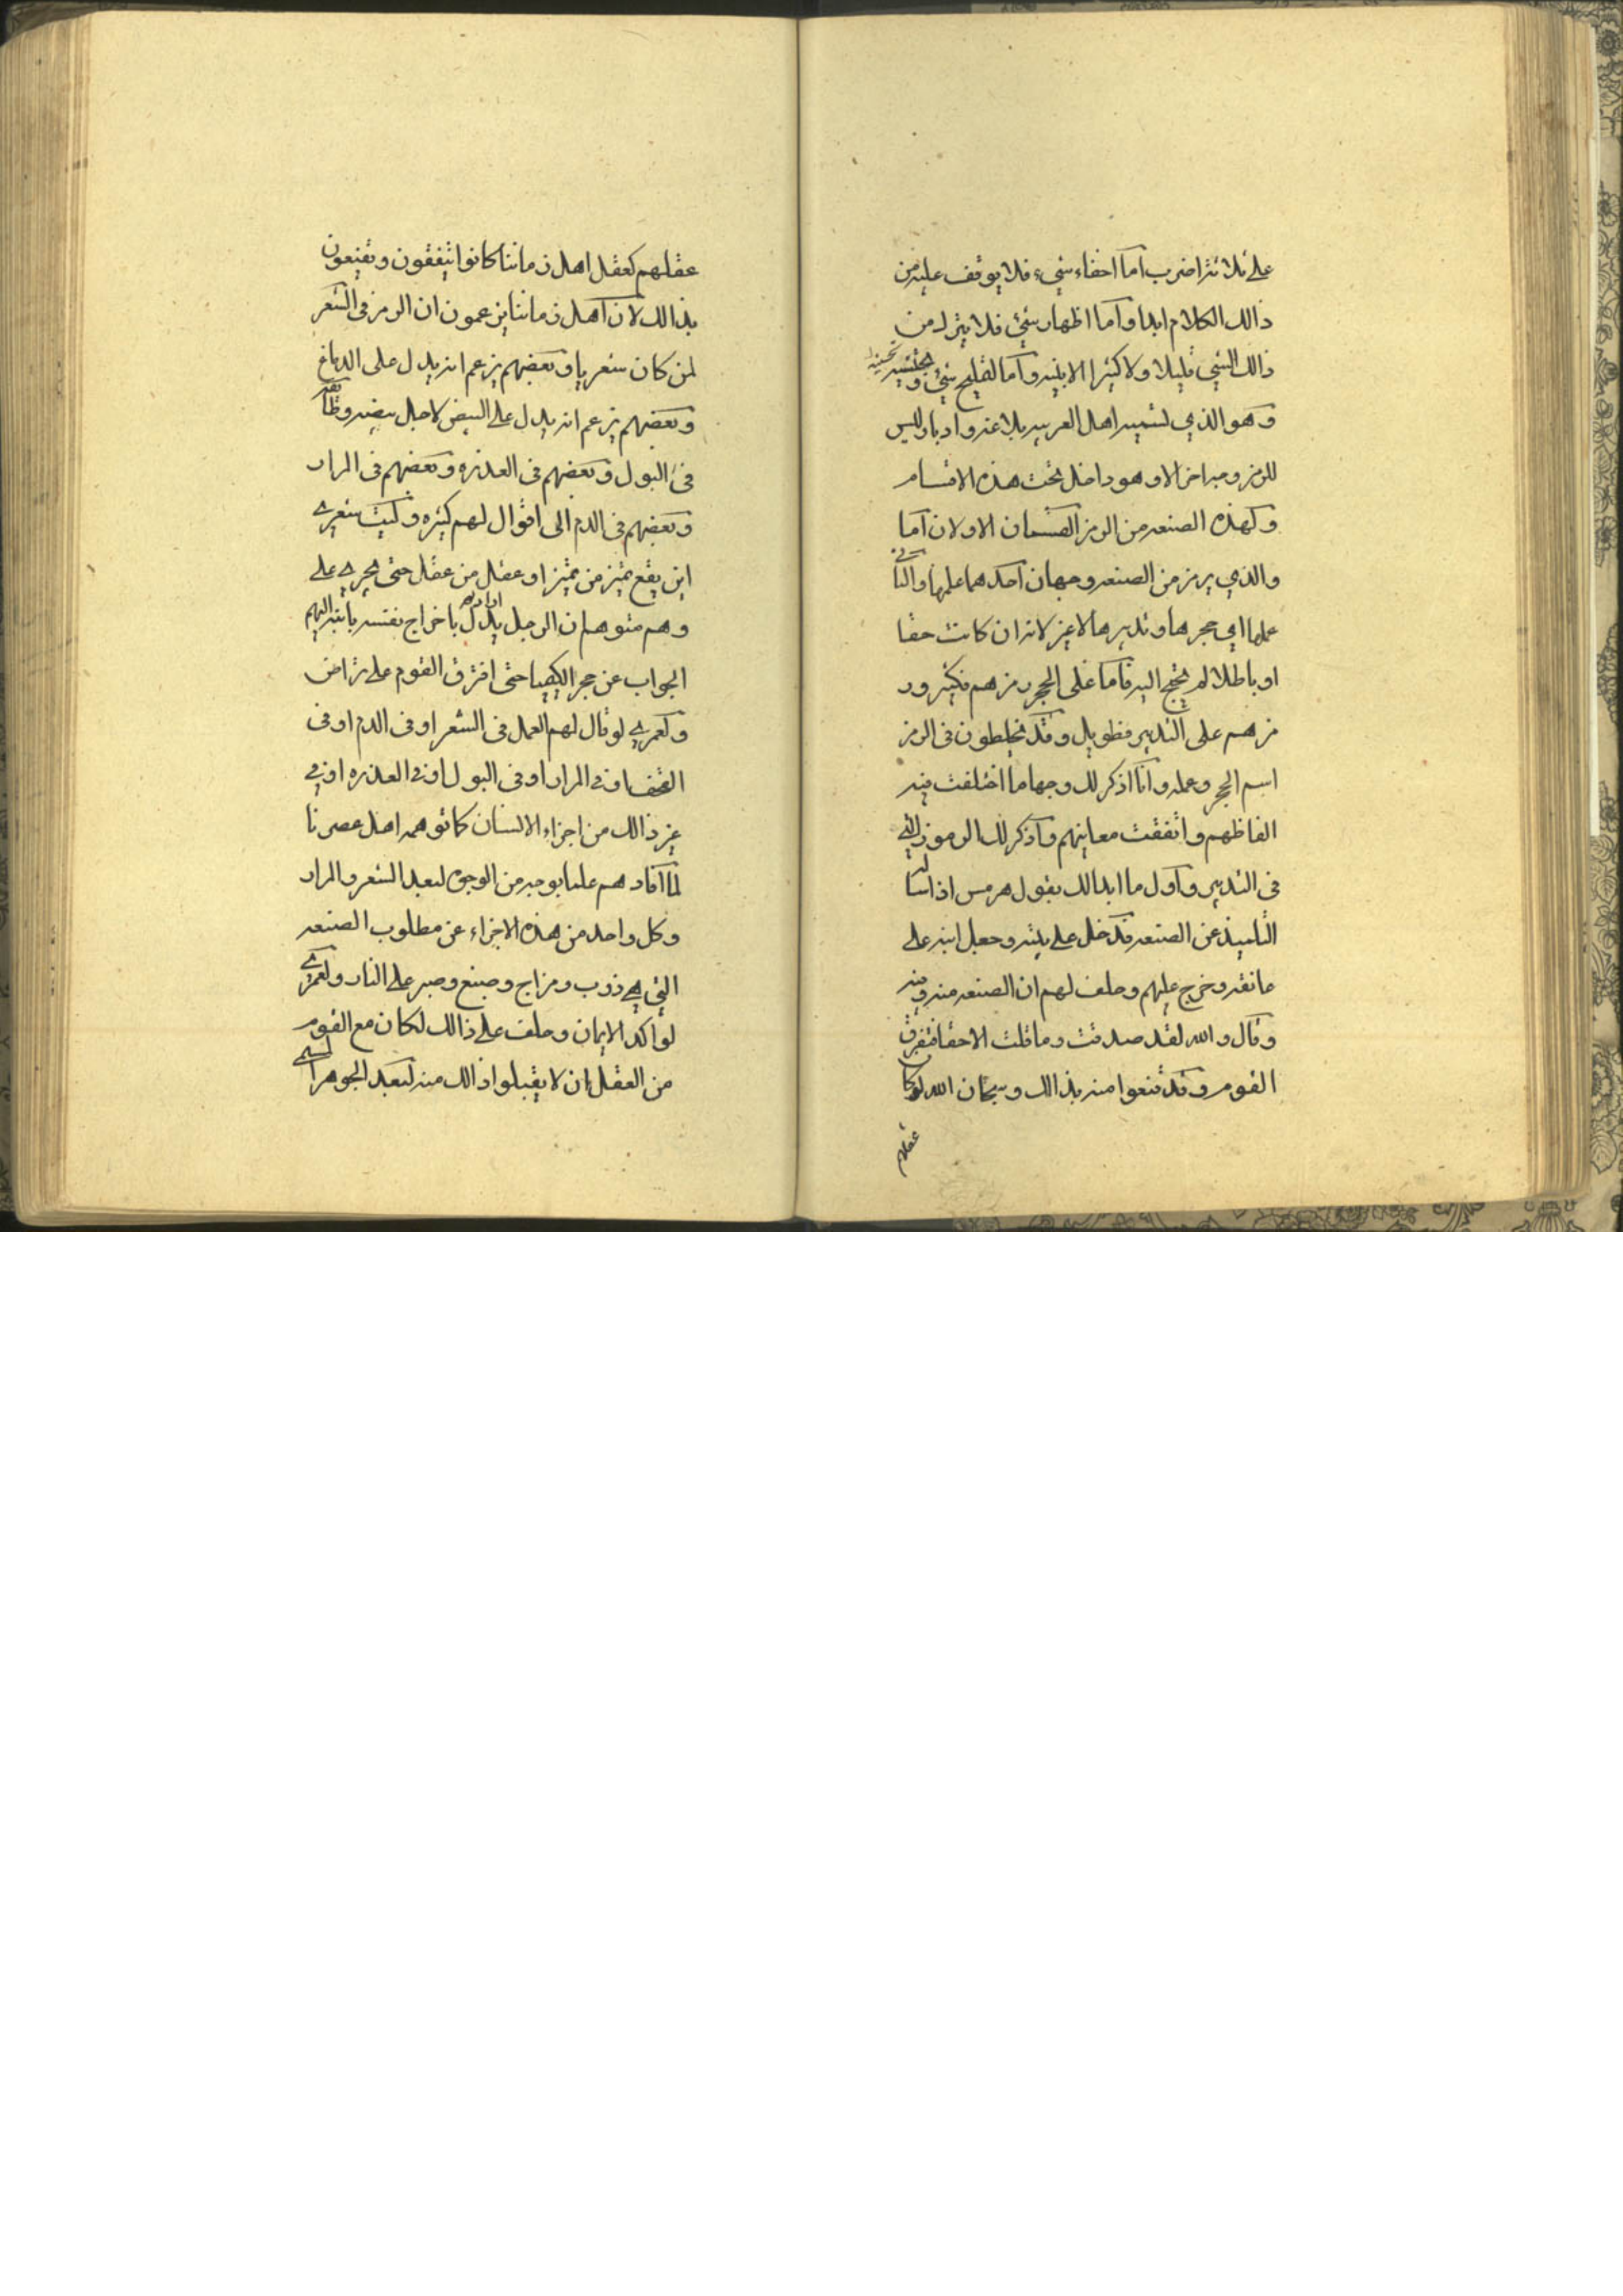 على ثلاثة اضرب اما اخفاء شيء فلا يوقف عليه من
ذالك الكلام ابدا واما اظهار شئ فلا يترك من
ذالك الشي قليلا ولا كثيرا الا بينه واما لقليح شئ و
وهو الذي لسميه اهل العربيه بلاغة واد باوليس
للرمز وجه اخر الا وهو داخل تحت هذه الاقسام
وكهذه الصنعه من الرمز القسمان الاولان اما
والذي يرمز من الصنعه وجهان احدهما علمها والثاني
عملها اي حجرها وتدبيرها لا غير لانه ان كانت حقا
او باطلا لم يحتج اليه فاما على الحجر رمزهم فكثير ور
مزهم على التدبير فطويل وقد يخلطون في الرمز
اسم الحجر وعمله وانا اذكر لك وجها ما اختلفت فيه
الفاظهم واتفقت معانيهم واذكر لك الرموز التي
في التدبير واول ما ابدا لك بقول هرمس اذا سأله
التلميذ عن الصنعه فدخل على بيته وحمل ابنه على
عاتقه وخرج عليهم وحلف لهم ان الصنعه منه وفيه
وقال والله لقد صدقت وما قلت الا حقا فتفرق
القوم وقد قنعوا منه بذالك وسبحان الله لو كا
عقلهم
عقلهم كعقل اهل زماننا كانوا يتفقون ويقنعون
بذالك لان اهل زماننا يزعمون ان الرمز في الشعر
لمن كان شعريا وبعضهم يزعم انه يدل على الدماغ
وبعضهم يزعم انه يدل على البيض لاجل بيضه وظا
في البول وبعضهم في العذره وبعضهم في المرار
وبعضهم في الدم الى اقوال لهم كثيره وليت شعري
اين يقع تميز من تميز او عقل من عقل حتى يجري على
وهم متوهم ان الرجل يدل باخراج نفسه بابنه اليهم
الجواب عن حجر الكيميا حتى افترق القوم على تراض
ولعمري لو قال لهم العمل في الشعر او في الدم او في
القحف او في المرار او في البول او في العذره او في
غير ذالك من اجزاء الانسان كما توهمه اهل عصرنا
لما افادهم علما بوجه من الوجوه لبعد الشعر والمرار
وكل واحد من هذه الاجزاء عن مطلوب الصنعه
التي هي ذوب ومزاج وصبغ وصبر على النار ولعمري
لو اكد الايمان وحلف على ذالك لكان مع القوم
من العقل ان لا يقبلوا ذالك منه لبعد الجوهر